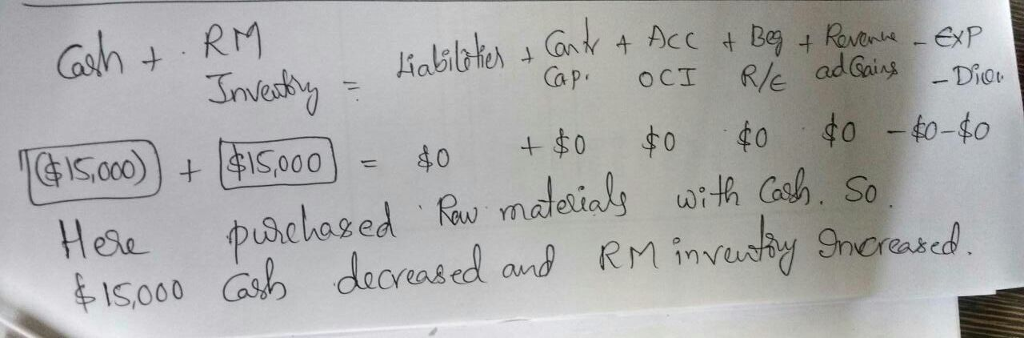 Cash + RM Inventory = Liabilities + Cont + ACC + Beg + Revenue - EXP
Cap. OCI R/E ad Gains - Div
($15,000) + $15,000 = $0 + $0 $0 $0 $0 - $0 - $0
Here purchased Raw materials with Cash. So
$15,000 Cash decreased and RM inventory Increased.